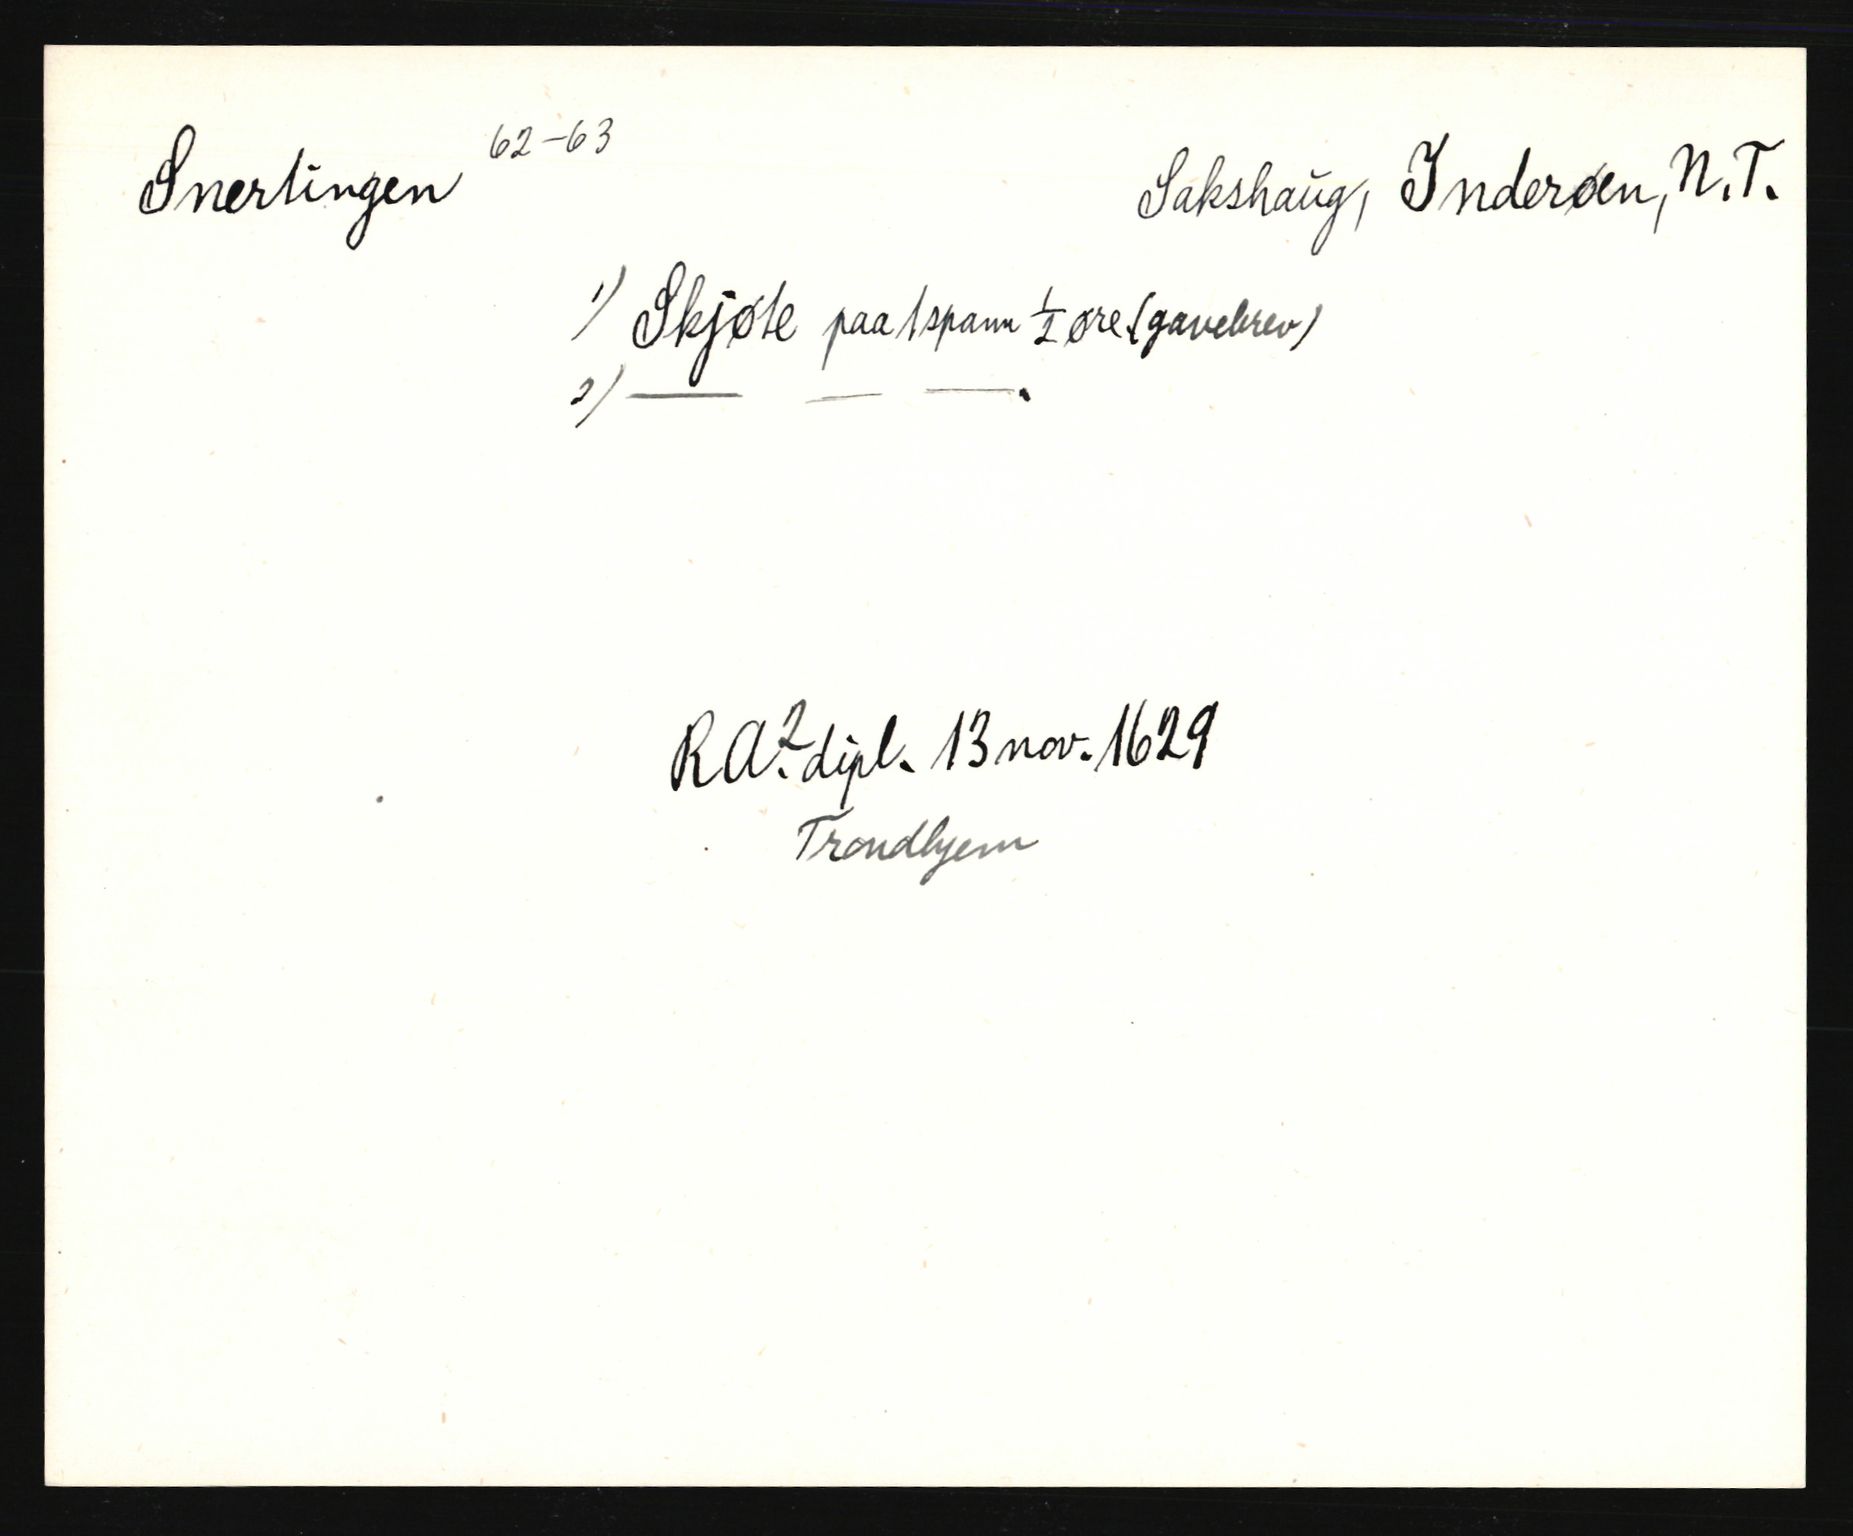 Snertingen 62-63 Sakshaug, Inderøen, N.T.
1) Skjøte paa 1 spann ½ øre (gavebrev)
2) — — —.
RA². dipl. 13 nov. 1629
Trondhjem